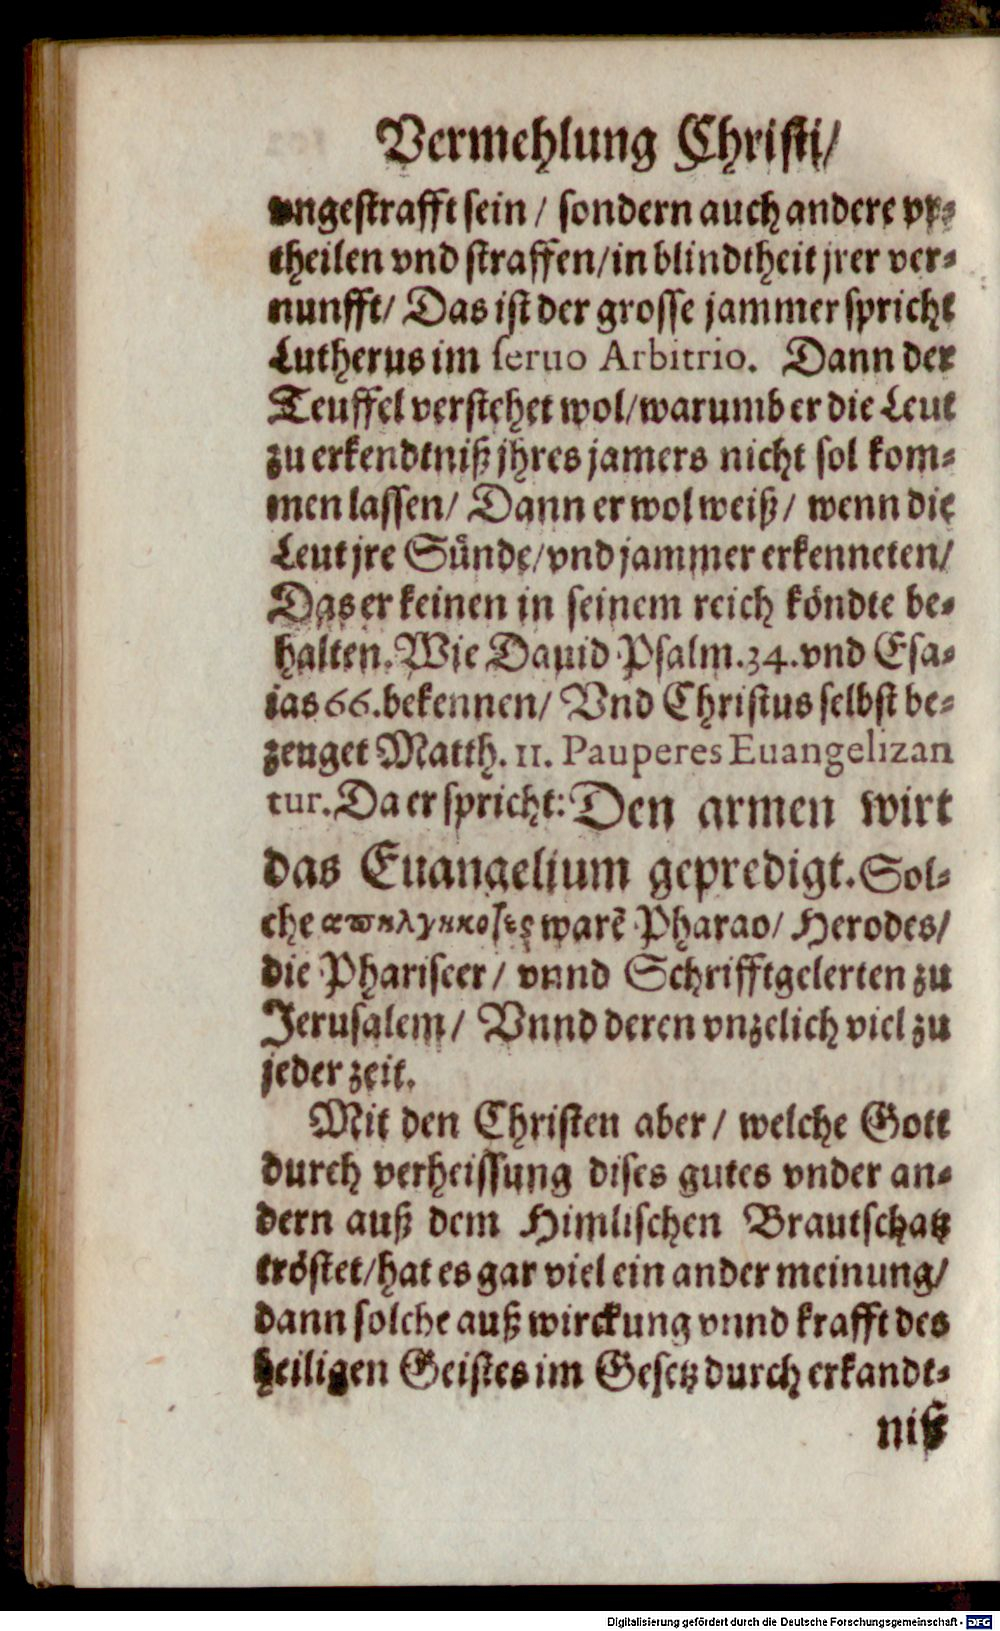 Vermehlung Christi/
vngestrafft sein / sondern auch andere vr⸗
theilen vnd straffen/in blindtheit jrer ver⸗
nunfft/ Das ist der grosse jammer spricht
Lutherus im seruo Arbitrio. Dann der
Teuffel verstehet wol/warumb er die Leut
zu erkendtniß jhres jamers nicht sol kom⸗
men lassen/ Dann er wol weiß/ wenn die
Leut jre Sünde/vnd jammer erkenneten/
Das er keinen in seinem reich köndte be⸗
halten. Wie Dauid Psalm.34.vnd Esa⸗
ias 66.bekennen/ Vnd Christus selbst be⸗
zeuget Matth. 11. Pauperes Euangelizan
tur. Da er spricht: Den armen wirt
das Euangelium gepredigt. Sol⸗
che απηλγηκοτες warẽ Pharao/ Herodes/
die Phariseer / vnnd Schrifftgelerten zu
Jerusalem/ Vnnd deren vnzelich viel zu
jeder zeit.
Mit den Christen aber/ welche Gott
durch verheissung dises gutes vnder an⸗
dern auß dem Himlischen Brautschatz
tröstet/hat es gar viel ein ander meinung/
dann solche auß wirckung vnnd krafft des
heiligen Geistes im Gesetz durch erkandt⸗
niß
Digitalisierung gefördert durch die Deutsche Forschungsgemeinschaft - DFG